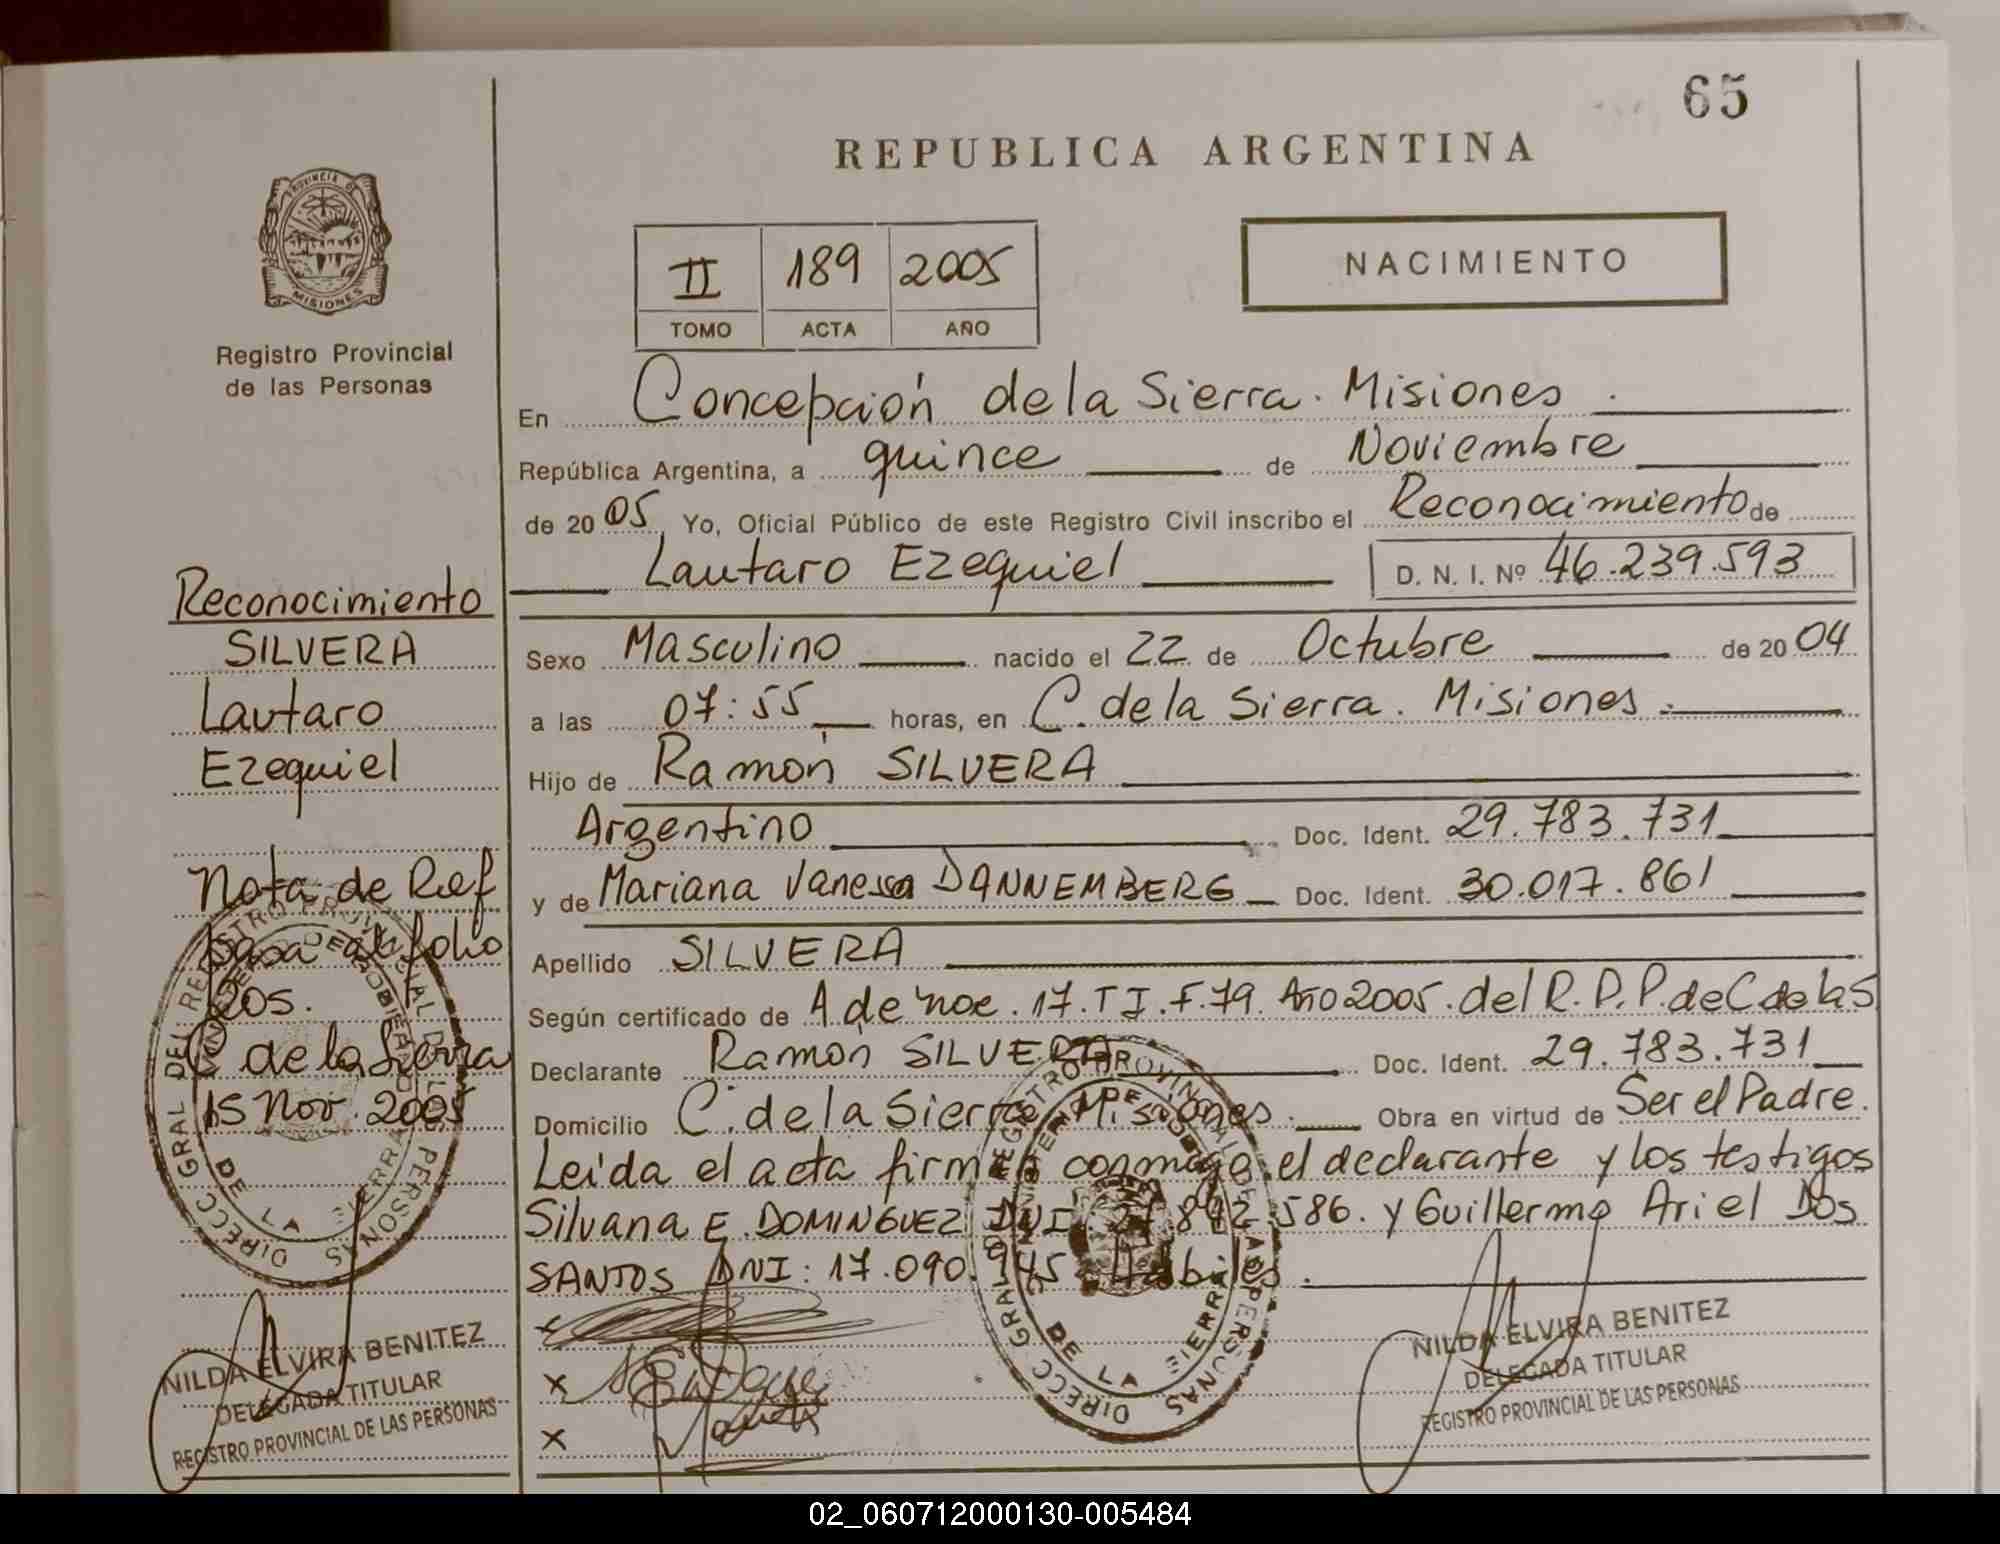 65
REPUBLICA ARGENTINA
PROVINCIA DE
MISIONES
Registro Provincial
de las Personas
II 189 2005
TOMO ACTA AÑO
NACIMIENTO
En Concepción de la Sierra. Misiones.
República Argentina, a quince de Noviembre
de 2005 Yo, Oficial Público de este Registro Civil inscribo el Reconocimiento de
Lautaro Ezequiel D. N. I. Nº 46.239.593
Sexo Masculino nacido el 22 de Octubre de 2004
a las 07:55 horas, en C. de la Sierra. Misiones.
Hijo de Ramón SILVERA
Argentino Doc. Ident. 29.783.731
y de Mariana Vanessa DANNEMBERG Doc. Ident. 30.017.861
Apellido SILVERA
Según certificado de A de nac. 17. T I. F. 79. Año 2005. del R. P. P. de C de la S
Declarante Ramón SILVERA Doc. Ident. 29.783.731
Domicilio C. de la Sierra Misiones. Obra en virtud de Ser el Padre.
Leída el acta firman conmigo el declarante y los testigos
Silvana E. DOMINGUEZ DNI 27.842.586. y Guillermo Ariel Dos
SANTOS DNI: 17.090.945 Hábiles.
x
x
x
NILDA ELVIRA BENITEZ
DELEGADA TITULAR
REGISTRO PROVINCIAL DE LAS PERSONAS
Reconocimiento
SILVERA
Lautaro
Ezequiel
Nota de Ref
pasa al folio
205.
C de la Sierra
15 Nov. 2005
NILDA ELVIRA BENITEZ
DELEGADA TITULAR
REGISTRO PROVINCIAL DE LAS PERSONAS
02_060712000130-005484